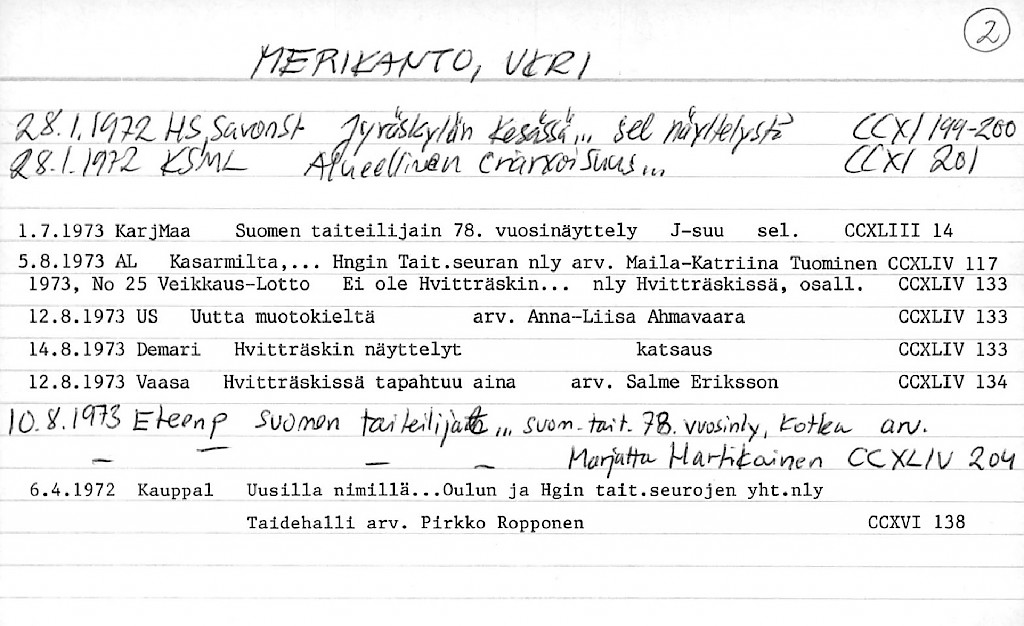 2
MERIKANTO, UKRI
28.1.1972 HS, Savonst Jyväskylän Kesässä... sel näyttelystä CCXI 199-200
28.1.1972 KSML Alueellinen erikoisuus... CCXI 201
1.7.1973 KarjMaa Suomen taiteilijain 78. vuosinäyttely J-suu sel. CCXLIII 14
5.8.1973 AL Kasarmilta,... Hngin Tait.seuran nly arv. Maila-Katriina Tuominen CCXLIV 117
1973, No 25 Veikkaus-Lotto Ei ole Hvitträskin... nly Hvitträskissä, osall. CCXLIV 133
12.8.1973 US Uutta muotokieltä arv. Anna-Liisa Ahmavaara CCXLIV 133
14.8.1973 Demari Hvitträskin näyttelyt katsaus CCXLIV 133
12.8.1973 Vaasa Hvitträskissä tapahtuu aina arv. Salme Eriksson CCXLIV 134
10.8.1973 Eteenp Suomen ... Suom.tait. 78. vuosinly, Kotka arv.
— — — — Marjatta Hartikainen CCXLIV 204
6.4.1972 Kauppal Uusilla nimillä...Oulun ja Hgin tait.seurojen yht.nly
Taidehalli arv. Pirkko Ropponen CCXVI 138